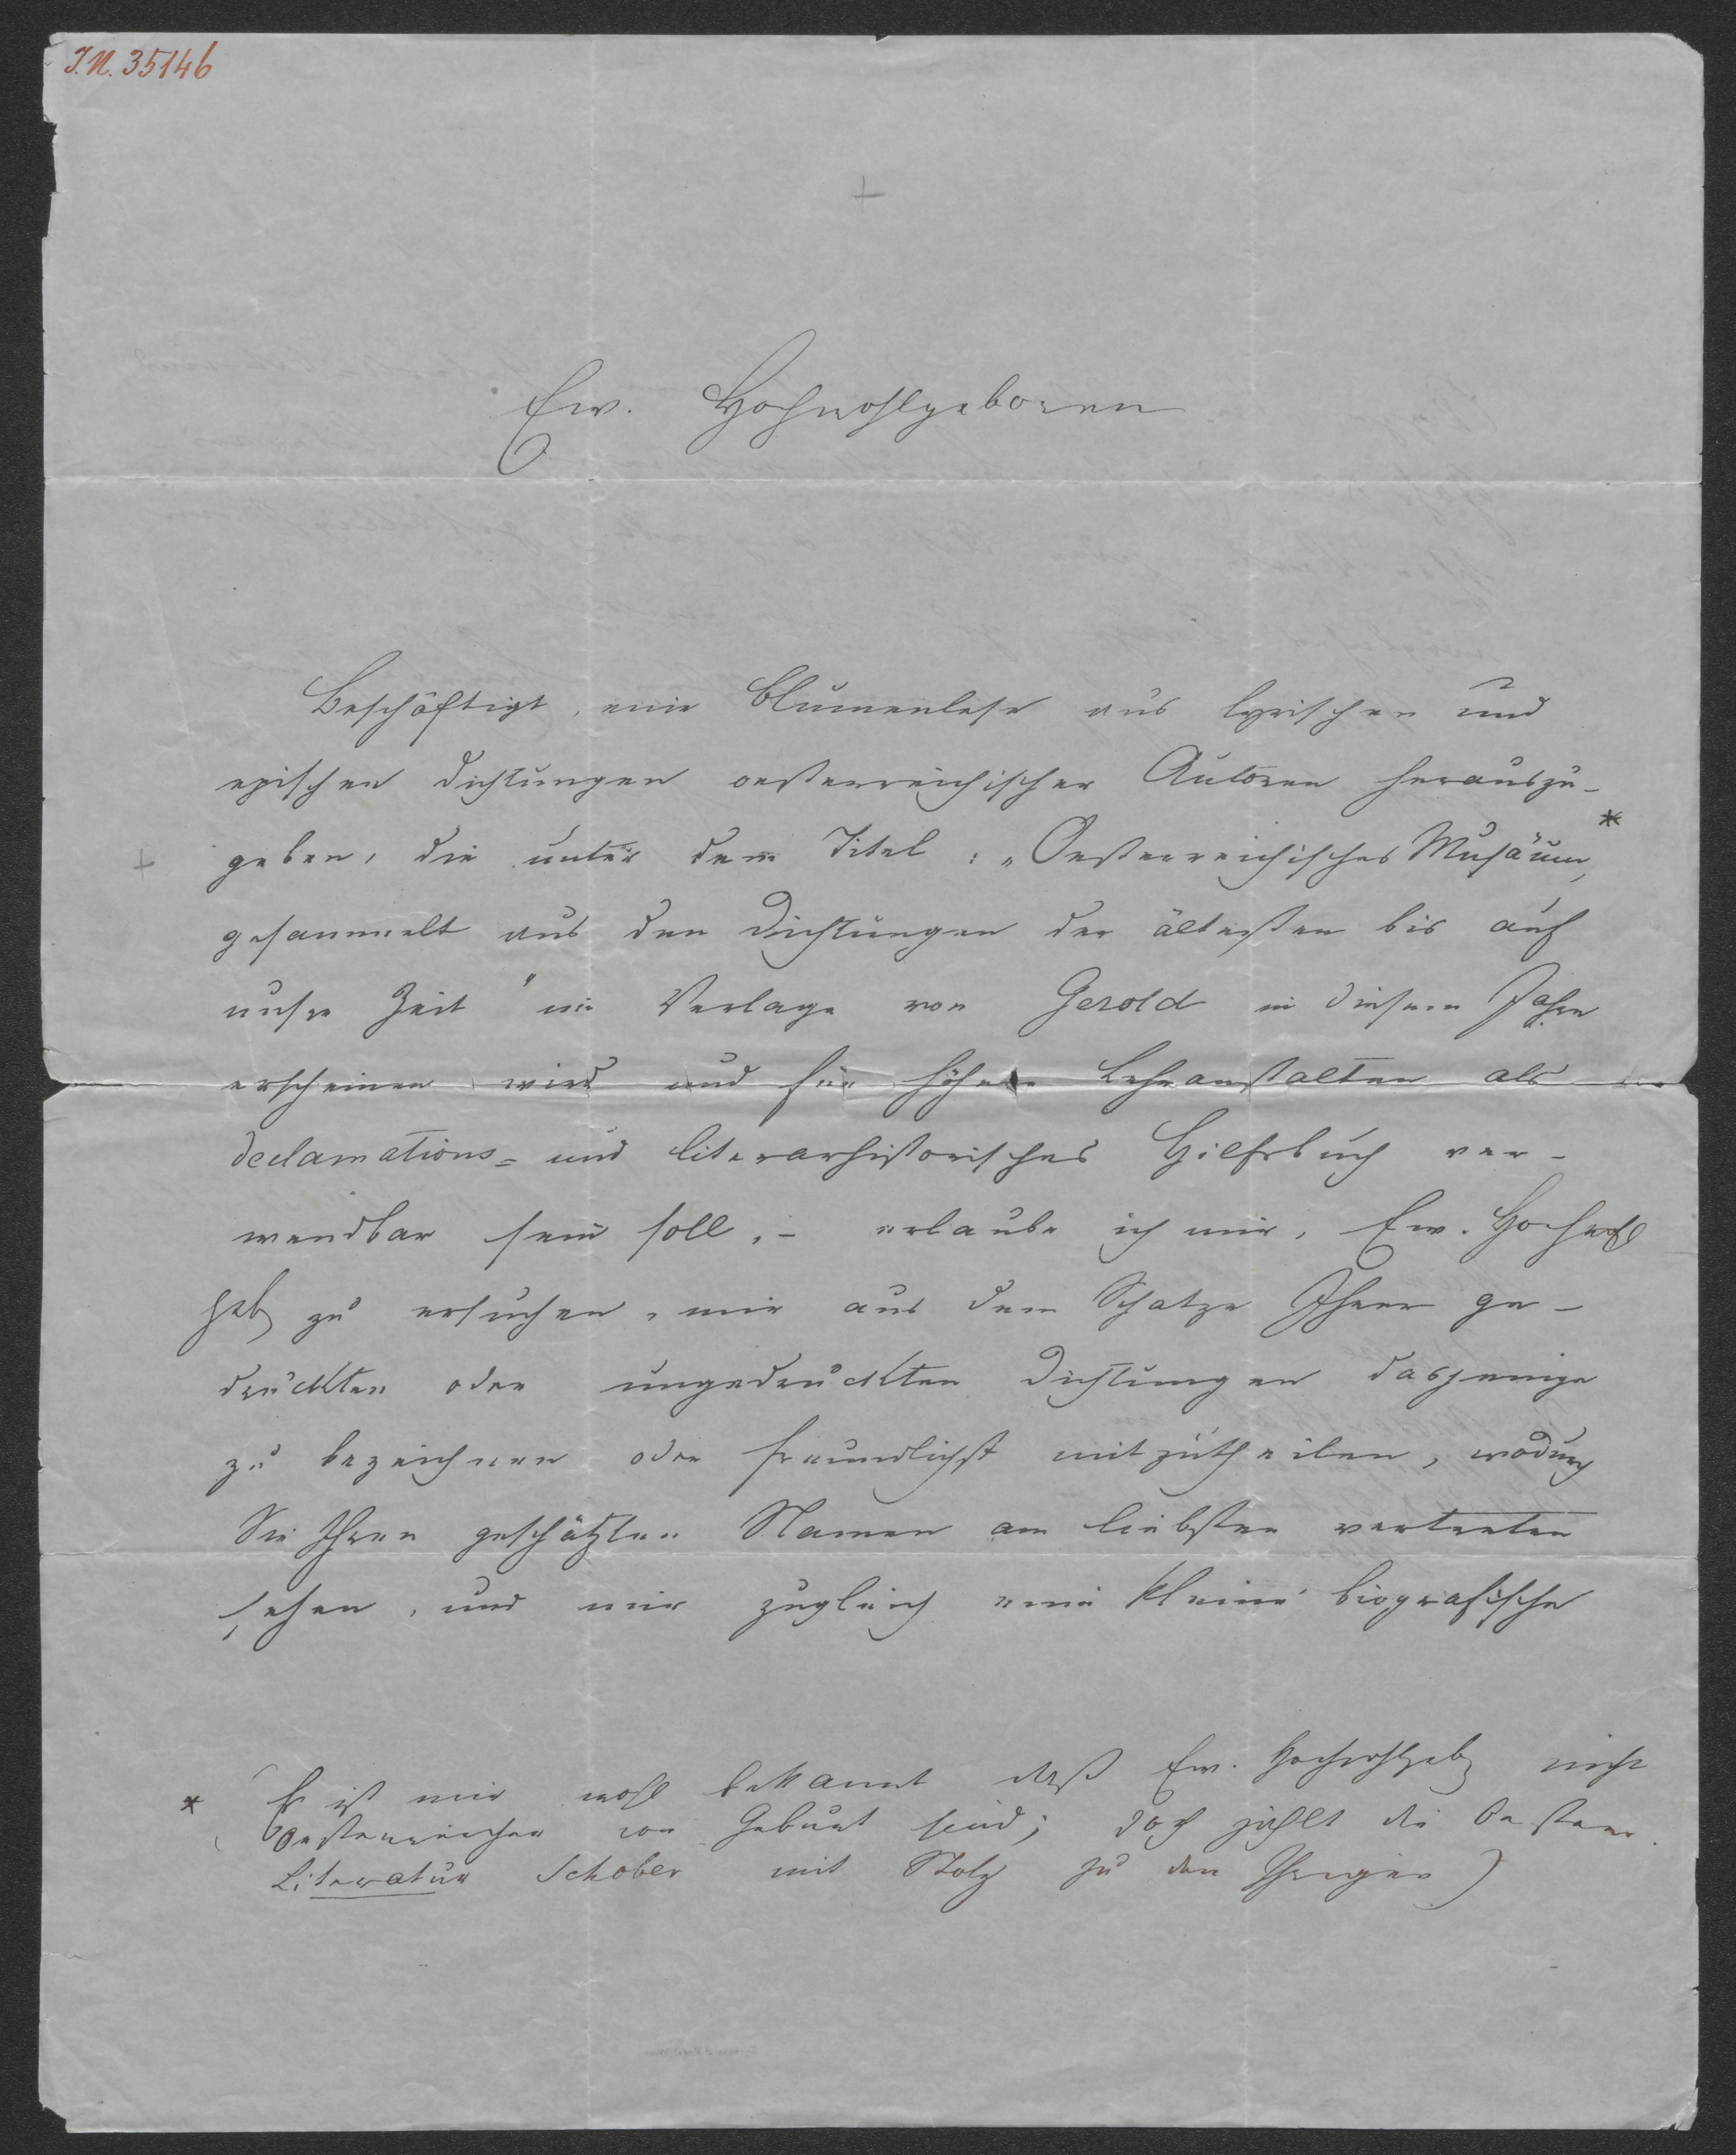 I.N. 35146
Ew. Hochwohlgeboren
Beschäftigt, eine Blumenlese aus lyrischen und
epischen Dichtungen oesterreichischer Autoren herauszu-
geben, die unter dem Titel: „Oesterreichisches Musäum, *
gesammelt aus den Dichtungen der ältesten bis auf
unsre Zeit" im Verlage von Gerold in diesem Jahre
erscheinen wird und für höhere Lehranstalten als
Declamations= und literarhistorisches Hilfsbuch ver-
wendbar sein soll, – erlaube ich mir, Ew. Hochwohl
geb zu ersuchen, mir aus dem Schatze Ihrer ge-
druckten oder ungedruckten Dichtungen dasjenige
zu bezeichnen oder freundlichst mitzutheilen, wodurch
Sie Ihren geschätzten Namen am liebsten vertreten
sehen, und mir zugleich eine kleine biografische
* (Es ist mir wohl bekannt daß Ew. Hochwohlgeb nicht
Oesterreicher von Geburt sind; doch zählt die Oesterr.
Literatur Schober mit Stolz zu den Ihrigen)